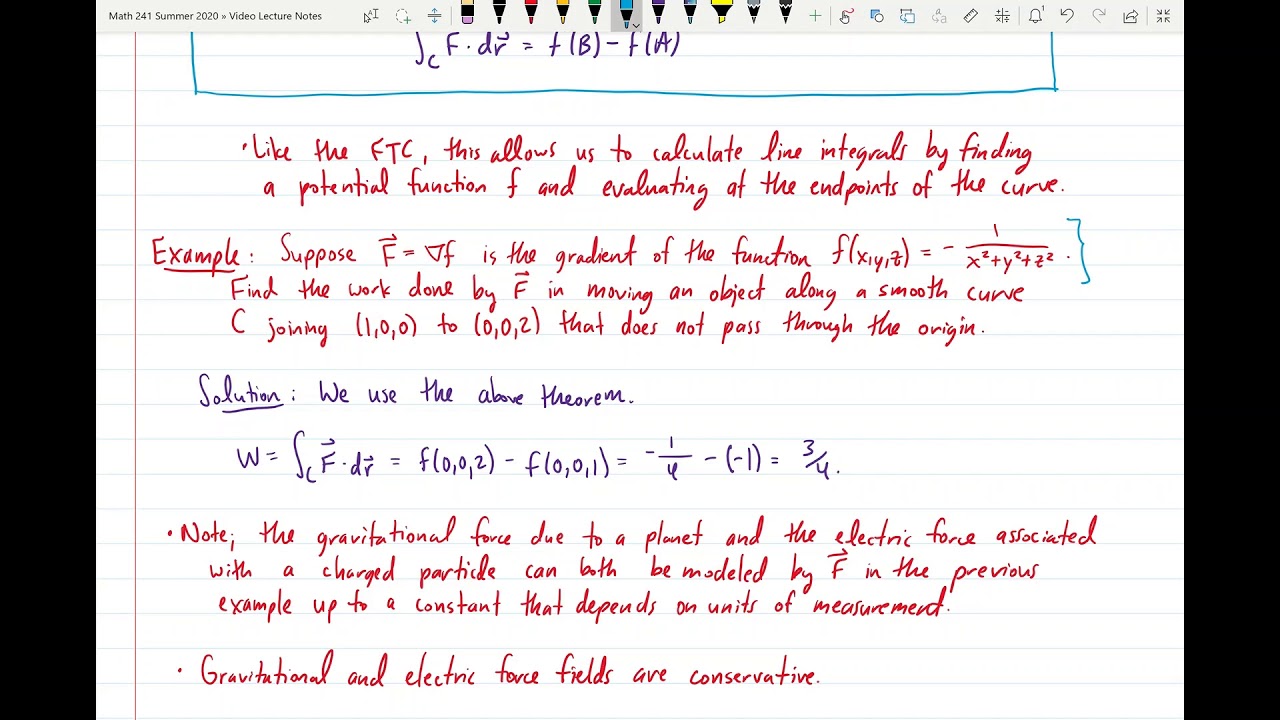 Math 241 Summer 2020 » Video Lecture Notes
∫_C F · dr⃗ = f(B) − f(A)
• Like the FTC, this allows us to calculate line integrals by finding
a potential function f and evaluating at the endpoints of the curve.
Example: Suppose F⃗ = ∇f is the gradient of the function f(x,y,z) = − 1/(x²+y²+z²).
Find the work done by F⃗ in moving an object along a smooth curve
C joining (1,0,0) to (0,0,2) that does not pass through the origin.
Solution: We use the above theorem.
W = ∫_C F⃗ · dr⃗ = f(0,0,2) − f(0,0,1) = − 1/4 − (−1) = 3/4.
• Note, the gravitational force due to a planet and the electric force associated
with a charged particle can both be modeled by F⃗ in the previous
example up to a constant that depends on units of measurement.
• Gravitational and electric force fields are conservative.